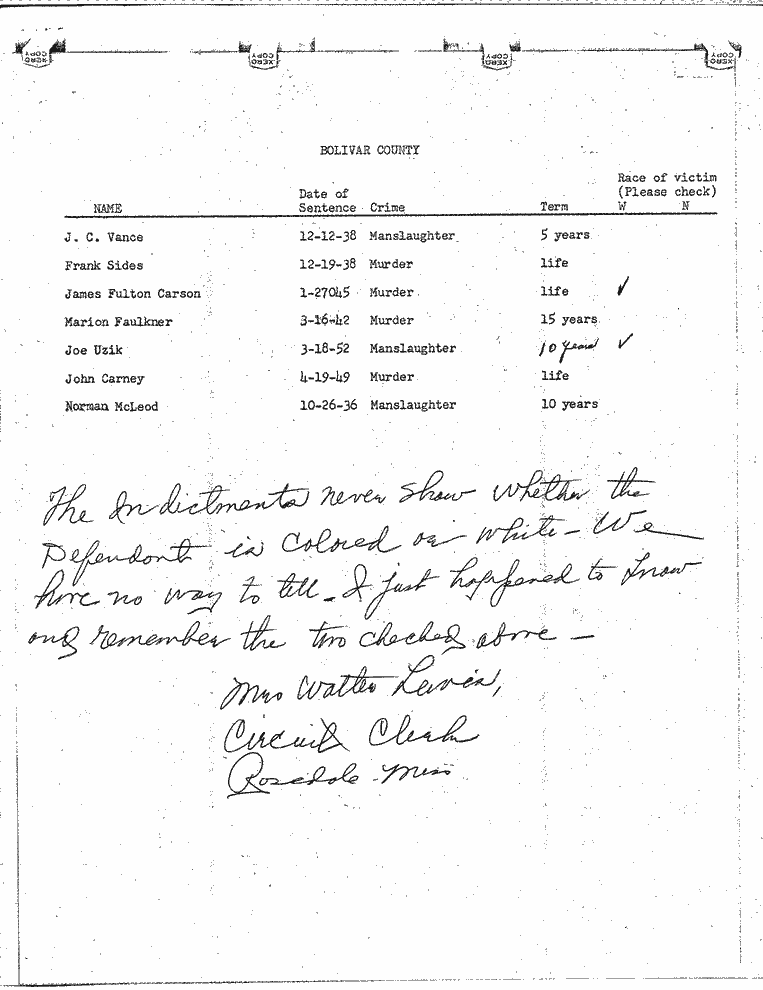 XERO COPY XERO COPY XERO COPY XERO COPY
BOLIVAR COUNTY
Race of victim
Date of (Please check)
NAME Sentence Crime Term W N
J. C. Vance 12-12-38 Manslaughter 5 years
Frank Sides 12-19-38 Murder life
James Fulton Carson 1-27045 Murder life ✓
Marion Faulkner 3-16-42 Murder 15 years
Joe Uzik 3-18-52 Manslaughter 10 years ✓
John Carney 4-19-49 Murder life
Norman McLeod 10-26-36 Manslaughter 10 years
The Indictments never show whether the
Defendant is Colored or white - We
have no way to tell - I just happened to know
and remember the two checked above -
Mrs Walter Lewis,
Circuit Clerk
Rosedale Miss